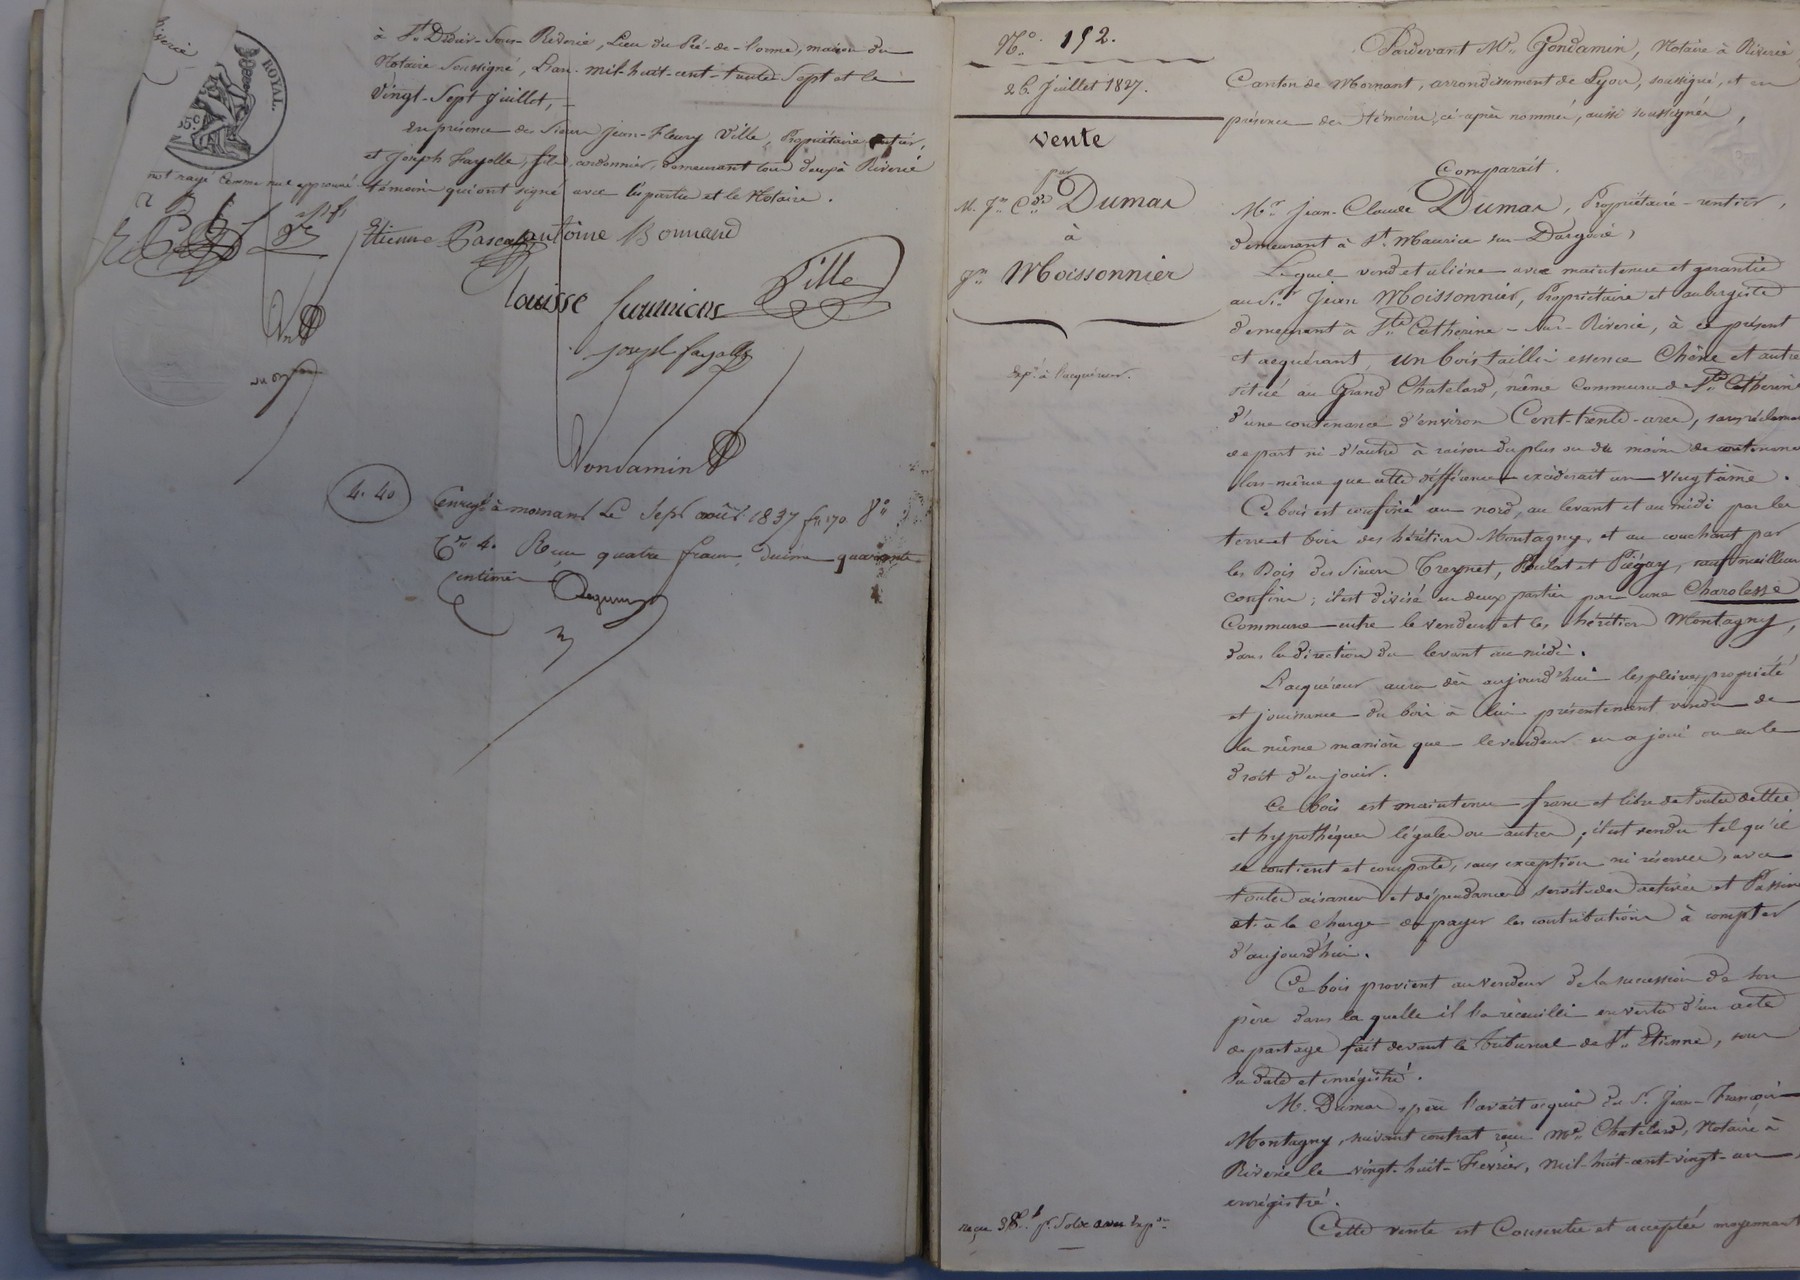 Riverie
ROYAL.
35c
à St Didier-Sous-Riverie, Lieu du Pié-de-l'orme, maison du
Notaire Soussigné, L'an mil-huit-cent-trente-Sept et le
Vingt-Sept Juillet,
En présence des Sieurs Jean-Fleury Ville, Propriétaire rentier,
et Joseph Fayolle, fils, cordonnier, demeurant tous deux à Riverie
témoins qui ont signé avec les parties et le Notaire.
mot rayé comme nul approuvé
Etienne Pascal antoine Bonnand
Ville
Louisse
joseph fayolle
Gondamin
4. 40
Enregé à mornant Le Sept août 1837 fo 170 Vo
Ce 4. Reçu quatre francs, décime quarante
Centimes
No. 192.
26. Juillet 1837.
Vente
par
M. Jn Cde Dumas
à
Jn Moissonnier
Expon à l'acquéreur.
reçu 38f pr Solde avec Expon
Pardevant Me Gondamin, Notaire à Riverie
Canton de Mornant, arrondissement de Lyon, soussigné, et en
présence des témoins ci-après nommés, aussi soussignés,
Comparait.
Mr Jean-Claude Dumas, Propriétaire-rentier,
demeurant à St Maurice sur Dargoire,
Lequel vend et aliène avec maintenue et garantie
au Sr Jean Moissonnier, Propriétaire et aubergiste
demeurant à Ste Catherine-Sur-Riverie, à ce présent
et acquérant, un bois taillis essence Chêne et autre
situé au Grand Chatelard, même Commune de Ste Catherine
d'une contenance d'environ Cent-trente-ares, sans réclamer
de part ni d'autre à raison du plus ou du moins de contenance
lors-même que cette différence excéderait un vingtième.
Ce bois est confiné au nord, au levant et au midi par les
terres et bois des héritiers Montagny, et au couchant par
les Bois des Sieurs Treynet, Poulat et Piégay, sauf meilleurs
confins; il est divisé en deux parties par une Charolesse
Commune entre le vendeur et les héritiers Montagny,
dans la direction du levant au midi.
L'acquéreur aura dès aujourd'hui les pleines propriété
et jouissance du bois à lui présentement vendu de
la même manière que le vendeur en a joui ou eu le
droit d'en jouir.
Ce bois est maintenu franc et libre de toutes dettes
et hypothèques légales ou autres; il est vendu tel qu'il
se contient et comporte, sans exception ni réserve, avec
toutes aisances et dépendances servitudes actives et Passives
et à la charge de payer les contributions à compter
d'aujourd'hui.
Ce bois provient au vendeur de la succession de son
père dans la quelle il l'a recueilli en vertu d'un acte
de partage fait devant le tribunal de St Etienne, sous
sa date et enrégistré.
M. Dumas, père l'avait acquis du Sr Jean-François
Montagny, suivant contrat reçu Me Chatelard, Notaire à
Riverie le vingt-huit-Fevrier, mil-huit-cent-vingt-un
enrégistré.
Cette vente est Consentie et acceptée moyennant